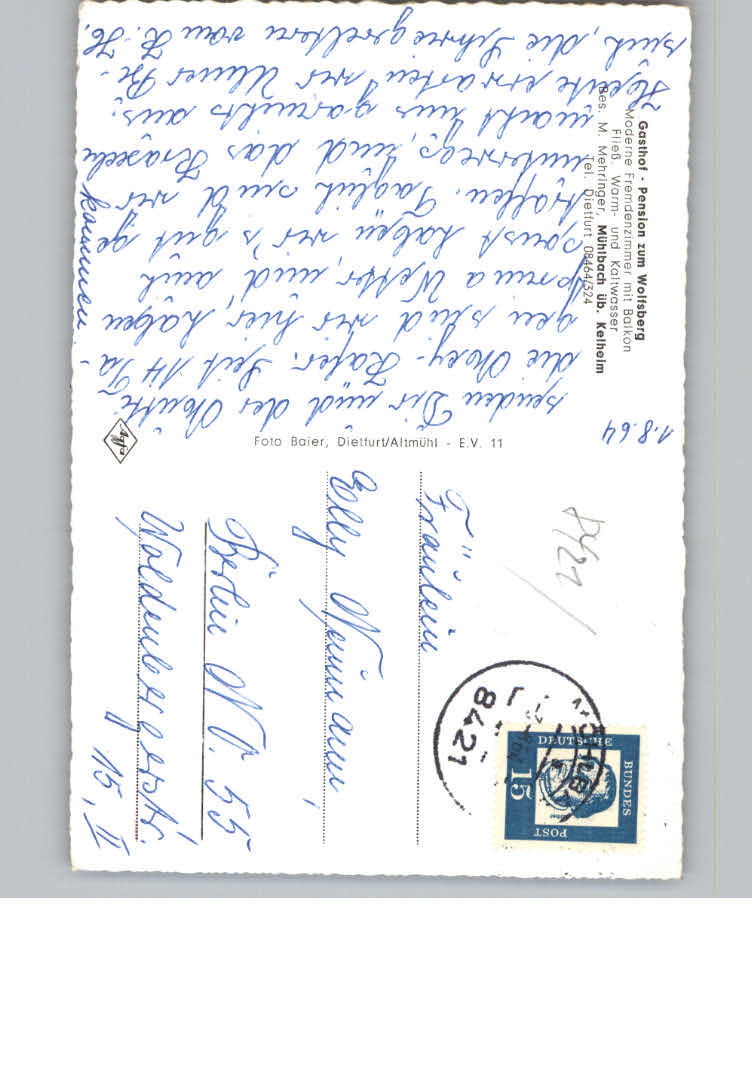 Gasthof - Pension zum Wolfsberg
Moderne Fremdenzimmer mit Balkon
Fließ. Warm- und Kaltwasser
Bes. M. Mehringer, Mühlbach üb. Kelheim
Tel. Dietfurt 08464/324
1.8.64
senden Dir und der
die Käfer. Seit 14 Ta-
gen sind wir hier, haben
prima Wetter, und auch
sonst haben wir's gut ge
troffen. Täglich sind wir
unterwegs, und das Kraxeln
macht uns garnichts aus.
Heute erwarten wir Ulmer Be-
such, die Schwiegereltern von K. H.
kommen
Foto Baier, Dietfurt/Altmühl - E.V. 11
Agfa
8421
Fräulein
Elly Neumann
Berlin NO. 55
Woldenbergerstr.
15, II
8421
DEUTSCHE
BUNDES
POST
15